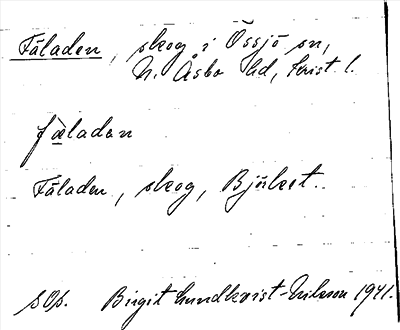 Fäladen, skog i Össjö sn,
N. Åsbo hd, Krist l.
fæ̀ladən
Fäladen, skog, Bjukest.
sOp. Birgit Lundkvist-Eriksson 1941.